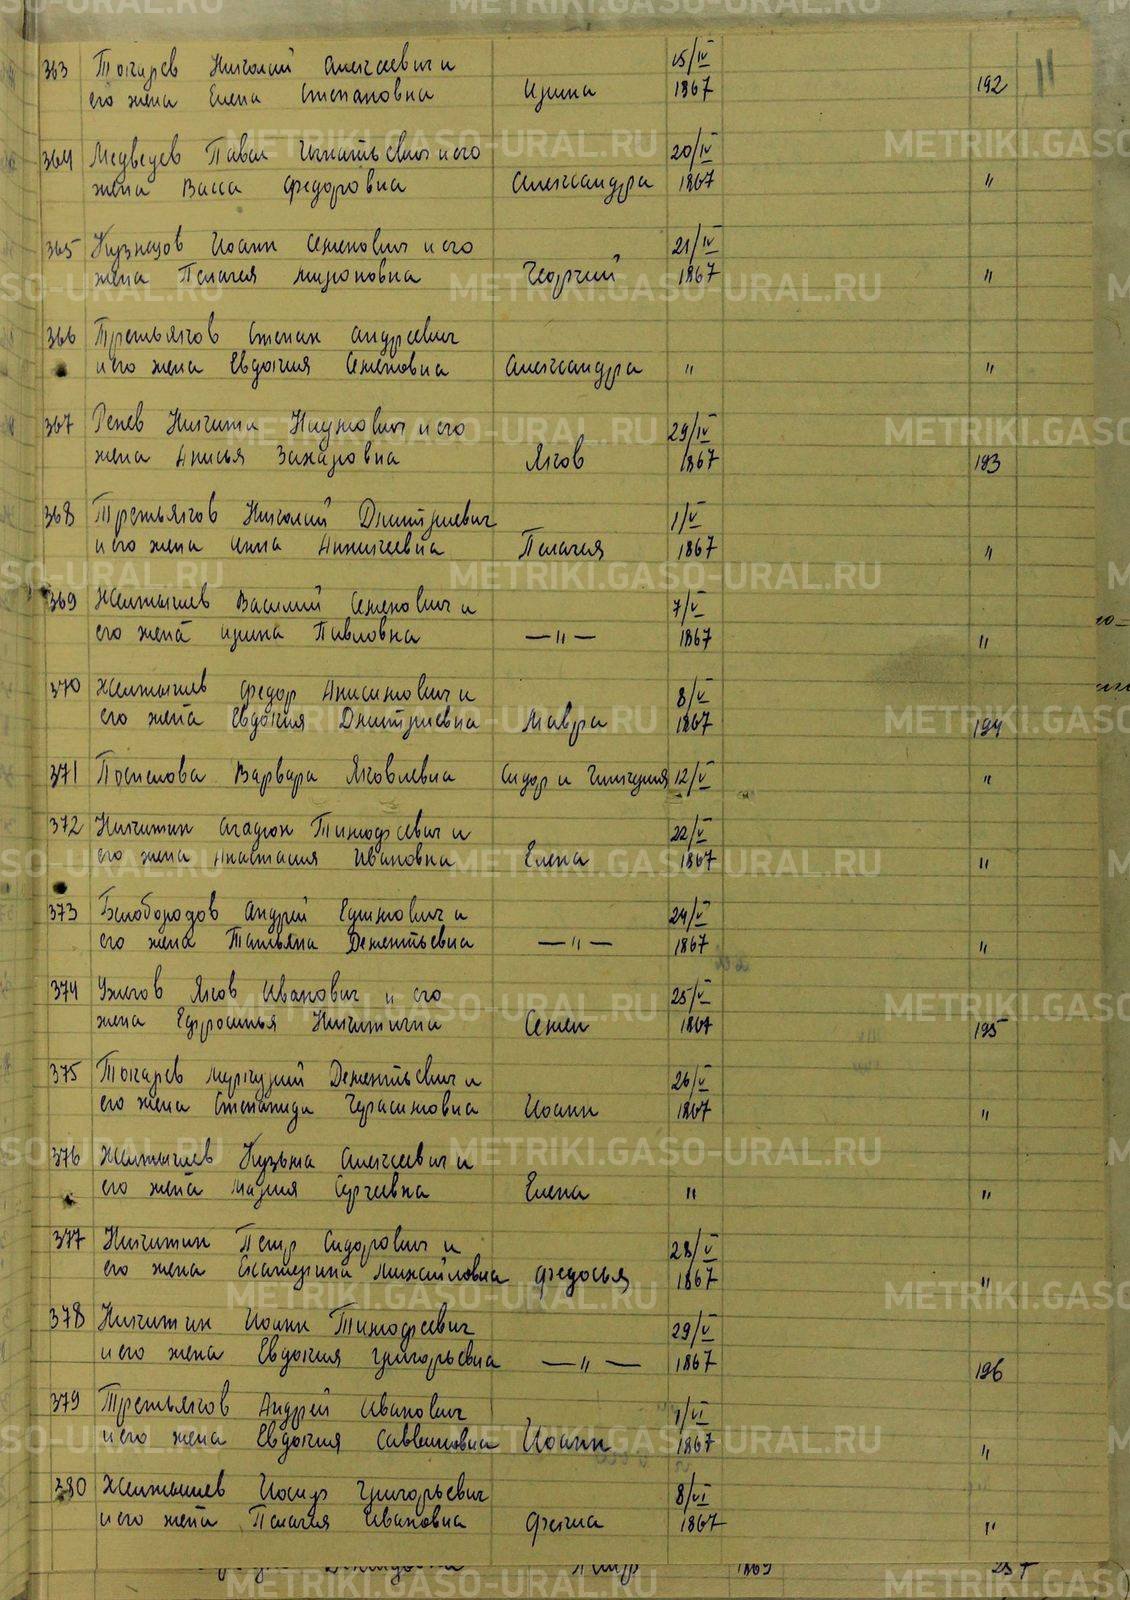 11
363 Токарев Николай Алексеевич и 15/IV
его жена Елена Степановна Ирина 1867 192
364 Медведев Павел Игнатьевич и его 20/IV
жена Васса Федоровна Александра 1867 "
365 Кузнецов Иоанн Семенович и его 21/IV
жена Пелагея Мироновна Георгий 1867 "
366 Третьяков Степан Андреевич
и его жена Евдокия Семеновна Александра " "
367 Репев Никита Наумович и его 29/IV
жена Анисья Захаровна Яков 1867 193
368 Третьяков Николай Дмитриевич 1/V
и его жена Анна Аникиевна Пелагея 1867 "
369 Желтышев Василий Семенович и 7/V
его жена Ирина Павловна —"— 1867 "
370 Желтышев Федор Анисимович и 8/V
его жена Евдокия Дмитриевна Мавра 1867 194
371 Поспелова Варвара Яковлевна Сидор и Гликерия 12/V "
372 Никитин Агафон Тимофеевич и 22/V
его жена Анастасия Ивановна Елена 1867 "
373 Белобородов Андрей Ефимович и 24/V
его жена Татьяна Дементьевна —"— 1867 "
374 Ужегов Яков Иванович и его 25/V
жена Ефросинья Никитична Семен 1867 195
375 Токарев Меркурий Дементьевич и 26/V
его жена Степанида Герасимовна Иоанн 1867 "
376 Желтышев Кузьма Алексеевич и
его жена Мария Сергеевна Елена " "
377 Никитин Петр Сидорович и 28/V
его жена Екатерина Михайловна Федосья 1867 "
378 Никитин Иоанн Тимофеевич 29/V
и его жена Евдокия Григорьевна —"— 1867 196
379 Третьяков Андрей Иванович 1/VI
и его жена Евдокия Саввишовна Иоанн 1867 "
380 Желтышев Иосиф Григорьевич 8/VI
и его жена Пелагея Ивановна Фекла 1867 "
1869
METRIKI.GASO-URAL.RU